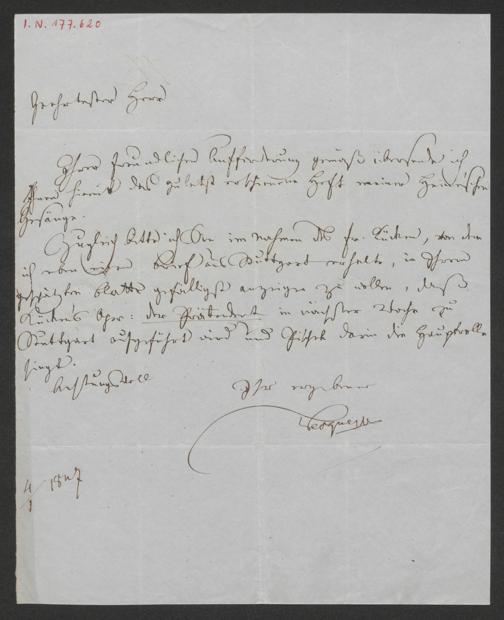 I. N. 177.620
Geehrtester Herr
Ihrer freundlichen Aufforderung gemäß übersende ich
Ihnen hiemit das zuletzt erschienene Heft meiner
Gesänge.
Zugleich bitte ich Sie im Namen des Fr. Kücken, von dem
ich eben einen Brief aus Stuttgart erhalte, in Ihrem
geschätzten Blatte gefälligst anzeigen zu wollen, daß
Kückens Oper: der Prätendent in nächster Woche zu
Stuttgart aufgeführt wird und Pischek darin die Hauptrolle
singt.
Achtungsvoll
Ihr ergebener
Vesque
4/ 1847